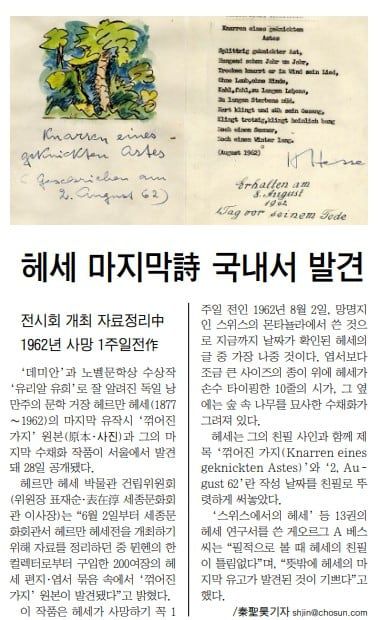 Knarren eines
geknickten Astes
(Geschrieben am
2. August 62)
Knarren eines geknickten
Astes
Splittrig geknickter Ast,
Hangend schon Jahr um Jahr,
Trocken knarrt er im Wind sein Lied,
Ohne Laub,ohne Rinde,
Kahl,fahl,zu langen Lebens,
Zu langen Sterbens müd.
Hart klingt und zäh sein Gesang,
Klingt trotzig,klingt heimlich bang
Noch einen Sommer,
Noch einen Winter lang.
(August 1962)
HHesse
Erhalten am
8. August
1962
Tag vor seinem Tode
헤세 마지막詩 국내서 발견
전시회 개최 자료정리中
1962년 사망 1주일전作
‘데미안’과 노벨문학상 수상작
‘유리알 유희’로 잘 알려진 독일 낭
만주의 문학 거장 헤르만 헤세(1877
～1962)의 마지막 유작시 ‘꺾어진
가지’ 원본(原本·사진)과 그의 마
지막 수채화 작품이 서울에서 발견
돼 28일 공개됐다.
헤르만 헤세 박물관 건립위원회
(위원장 표재순·表在淳 세종문화회
관 이사장)는 “6월 2일부터 세종문
화회관서 헤르만 헤세전을 개최하기
위해 자료를 정리하던 중 뮌헨의 한
컬렉터로부터 구입한 200여장의 헤
세 편지·엽서 묶음 속에서 ‘꺾어진
가지’ 원본이 발견됐다”고 밝혔다.
이 작품은 헤세가 사망하기 꼭 1
주일 전인 1962년 8월 2일, 망명지
인 스위스의 몬타뇰라에서 쓴 것으
로 지금까지 날짜가 확인된 헤세의
글 중 가장 나중 것이다. 엽서보다
조금 큰 사이즈의 종이 위에 헤세가
손수 타이핑한 10줄의 시가, 그 옆
에는 숲 속 나무를 묘사한 수채화가
그려져 있다.
헤세는 그의 친필 사인과 함께 제
목 ‘꺾어진 가지(Knarren eines
geknickten Astes)’와 ‘2. Au-
gust 62’란 작성 날짜를 친필로 뚜
렷하게 써놓았다.
‘스위스에서의 헤세’ 등 13권의
헤세 연구서를 쓴 게오르그 A 베스
씨는 “필적으로 볼 때 헤세의 친필
이 틀림없다”며, “뜻밖에 헤세의 마
지막 유고가 발견된 것이 기쁘다”고
했다.
/秦聖昊기자 shjin@chosun.com